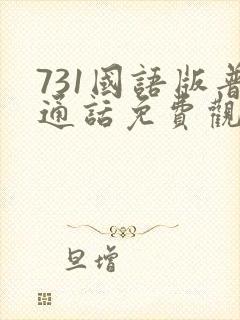 731國語版普
通話免費觀
旦增